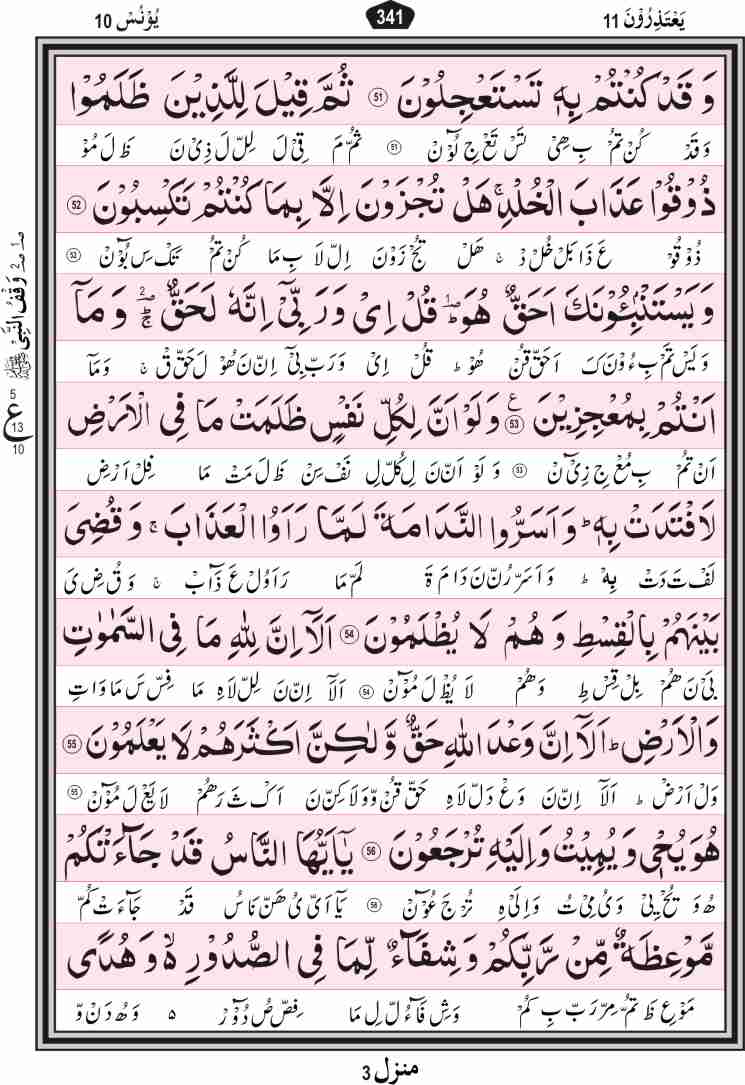 یَعْتَذِرُوْنَ 11
341
یُوْنُسْ 10
وَ قَدْ كُنْتُمْ بِهٖ تَسْتَعْجِلُوْنَ 51 ثُمَّ قِیْلَ لِلَّذِیْنَ ظَلَمُوْا
وَقَدْ كُنْ تُمْ بِ هِیْ تَسْ تَعْ جِ لُوْٓنْ 51 ثُمْ مَ قِیْ لَ لِلْ لَ ذِیْ نَ ظَ لَ مُوْ
ذُوْقُوْا عَذَابَ الْخُلْدِ ۚ هَلْ تُجْزَوْنَ اِلَّا بِمَا كُنْتُمْ تَكْسِبُوْنَ 52
ذُوْ قُوْ عَ ذَا بَلْ خُلْ دْ ۚ هَلْ تُجْ زَوْنَ اِلْ لَا بِ مَا كُنْ تُمْ تَكْ سِ بُوْٓنْ 52
وَیَسْتَنْۢبِـُٔوْنَكَ اَحَقٌّ هُوَ ؕ قُلْ اِیْ وَ رَبِّیْۤ اِنَّهٗ لَحَقٌّ ؔۚ وَ مَاۤ
وَ یَسْ تَمْ بِ ءُوْنَ كَ اَحَقْ قُنْ هُوْ ؕ قُلْ اِیْ وَرَبْ بِیْٓ اِنْ نَ هُوْ لَ حَقْ قْ ۚ وَمَآ
اَنْتُمْ بِمُعْجِزِیْنَ 53 ع وَ لَوْ اَنَّ لِكُلِّ نَفْسٍ ظَلَمَتْ مَا فِی الْاَرْضِ
اَنْ تُمْ بِ مُعْ جِ زِیْٓ نْ 53 وَ لَوْ اَنْ نَ لِ كُلْ لِ نَفْ سِنْ ظَ لَ مَتْ مَا فِلْ اَرْضِ
لَافْتَدَتْ بِهٖ ؕ وَ اَسَرُّوا النَّدَامَةَ لَمَّا رَاَوُا الْعَذَابَ ۚ وَ قُضِیَ
لَفْ تَ دَتْ بِهْ ؕ وَ اَ سَرْ رُنْ نَ دَا مَ ةَ لَمْ مَا رَ اَوُلْ عَ ذَآبْ ۚ وَ قُ ضِ یَ
بَیْنَهُمْ بِالْقِسْطِ وَ هُمْ لَا یُظْلَمُوْنَ 54 اَلَاۤ اِنَّ لِلّٰهِ مَا فِی السَّمٰوٰتِ
بَیْ نَ هُمْ بِلْ قِسْ طِ وَهُمْ لَا یُظْ لَ مُوْٓنْ 54 اَلَآ اِنْ نَ لِلْ لَاهِ مَا فِسْ سَ مَا وَا تِ
وَالْاَرْضِ ؕ اَلَاۤ اِنَّ وَعْدَ اللّٰهِ حَقٌّ وَّ لٰكِنَّ اَكْثَرَهُمْ لَا یَعْلَمُوْنَ 55
وَلْ اَرْضْ ؕ اَلَآ اِنْ نَ وَعْ دَلْ لَاهِ حَقْ قُنْ وَّوَلَا كِنْ نَ اَكْ ثَ رَهُمْ لَا یَعْ لَ مُوْٓنْ 55
هُوَ یُحْیٖ وَ یُمِیْتُ وَ اِلَیْهِ تُرْجَعُوْنَ 56 یٰۤاَیُّهَا النَّاسُ قَدْ جَآءَتْكُمْ
هُ وَ یُحْ یِیْ وَ یُ مِیْ تُ وَ اِلَیْ هِ تُرْ جَ عُوْٓنْ 56 یَآ اَیْ یُ هَنْ نَاسُ قَدْ جَآءَتْ كُمْ
مَّوْعِظَةٌ مِّنْ رَّبِّكُمْ وَ شِفَآءٌ لِّمَا فِی الصُّدُوْرِ ۙ۬ وَ هُدًی
مَوْ عِ ظَ تُمْ مِرْ رَبْ بِ كُمْ وَشِ فَآءُ لْ لِ مَا فِصْ صُ دُوْٓرْ ۵ وَ هُ دَنْ وَّ
وَقْفُ النَّبِیْ ﷺ
5
ع
13
10
منزل 3